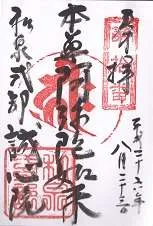 奉拝
平成二十六年
八月二十三日
本尊阿弥陀如来
和泉式部 誠心院